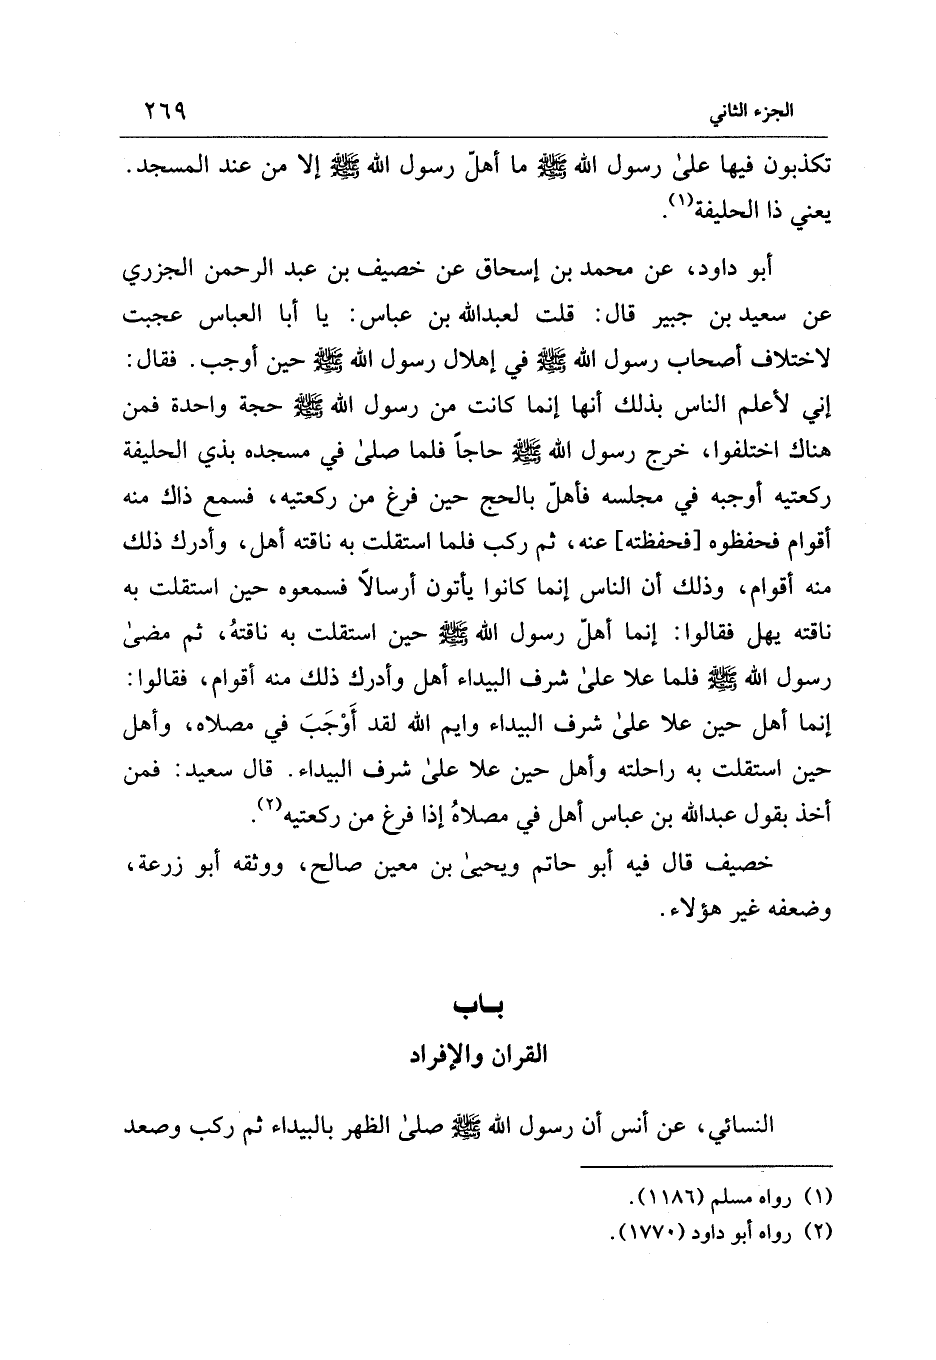 الجزء الثاني ٢٦٩
تكذبون فيها علىٰ رسول الله ﷺ ما أهلّ رسول الله ﷺ إلا من عند المسجد.
يعني ذا الحليفة(١).
أبو داود، عن محمد بن إسحاق عن خصيف بن عبد الرحمن الجزري
عن سعيد بن جبير قال: قلت لعبدالله بن عباس: يا أبا العباس عجبت
لاختلاف أصحاب رسول الله ﷺ في إهلال رسول الله ﷺ حين أوجب. فقال:
إني لأعلم الناس بذلك أنها إنما كانت من رسول الله ﷺ حجة واحدة فمن
هناك اختلفوا، خرج رسول الله ﷺ حاجاً فلما صلىٰ في مسجده بذي الحليفة
ركعتيه أوجبه في مجلسه فأهلّ بالحج حين فرغ من ركعتيه، فسمع ذاك منه
أقوام فحفظوه [فحفظته] عنه، ثم ركب فلما استقلت به ناقته أهل، وأدرك ذلك
منه أقوام، وذلك أن الناس إنما كانوا يأتون أرسالاً فسمعوه حين استقلت به
ناقته يهل فقالوا: إنما أهلّ رسول الله ﷺ حين استقلت به ناقتهُ، ثم مضىٰ
رسول الله ﷺ فلما علا علىٰ شرف البيداء أهل وأدرك ذلك منه أقوام، فقالوا:
إنما أهل حين علا علىٰ شرف البيداء وايم الله لقد أَوْجَبَ في مصلاه، وأهل
حين استقلت به راحلته وأهل حين علا علىٰ شرف البيداء. قال سعيد: فمن
أخذ بقول عبدالله بن عباس أهل في مصلاهُ إذا فرغ من ركعتيه(٢).
خصيف قال فيه أبو حاتم ويحيىٰ بن معين صالح، ووثقه أبو زرعة،
وضعفه غير هؤلاء.
بـاب
القران والإفراد
النسائي، عن أنس أن رسول الله ﷺ صلىٰ الظهر بالبيداء ثم ركب وصعد
(١) رواه مسلم (١١٨٦).
(٢) رواه أبو داود (١٧٧٠).